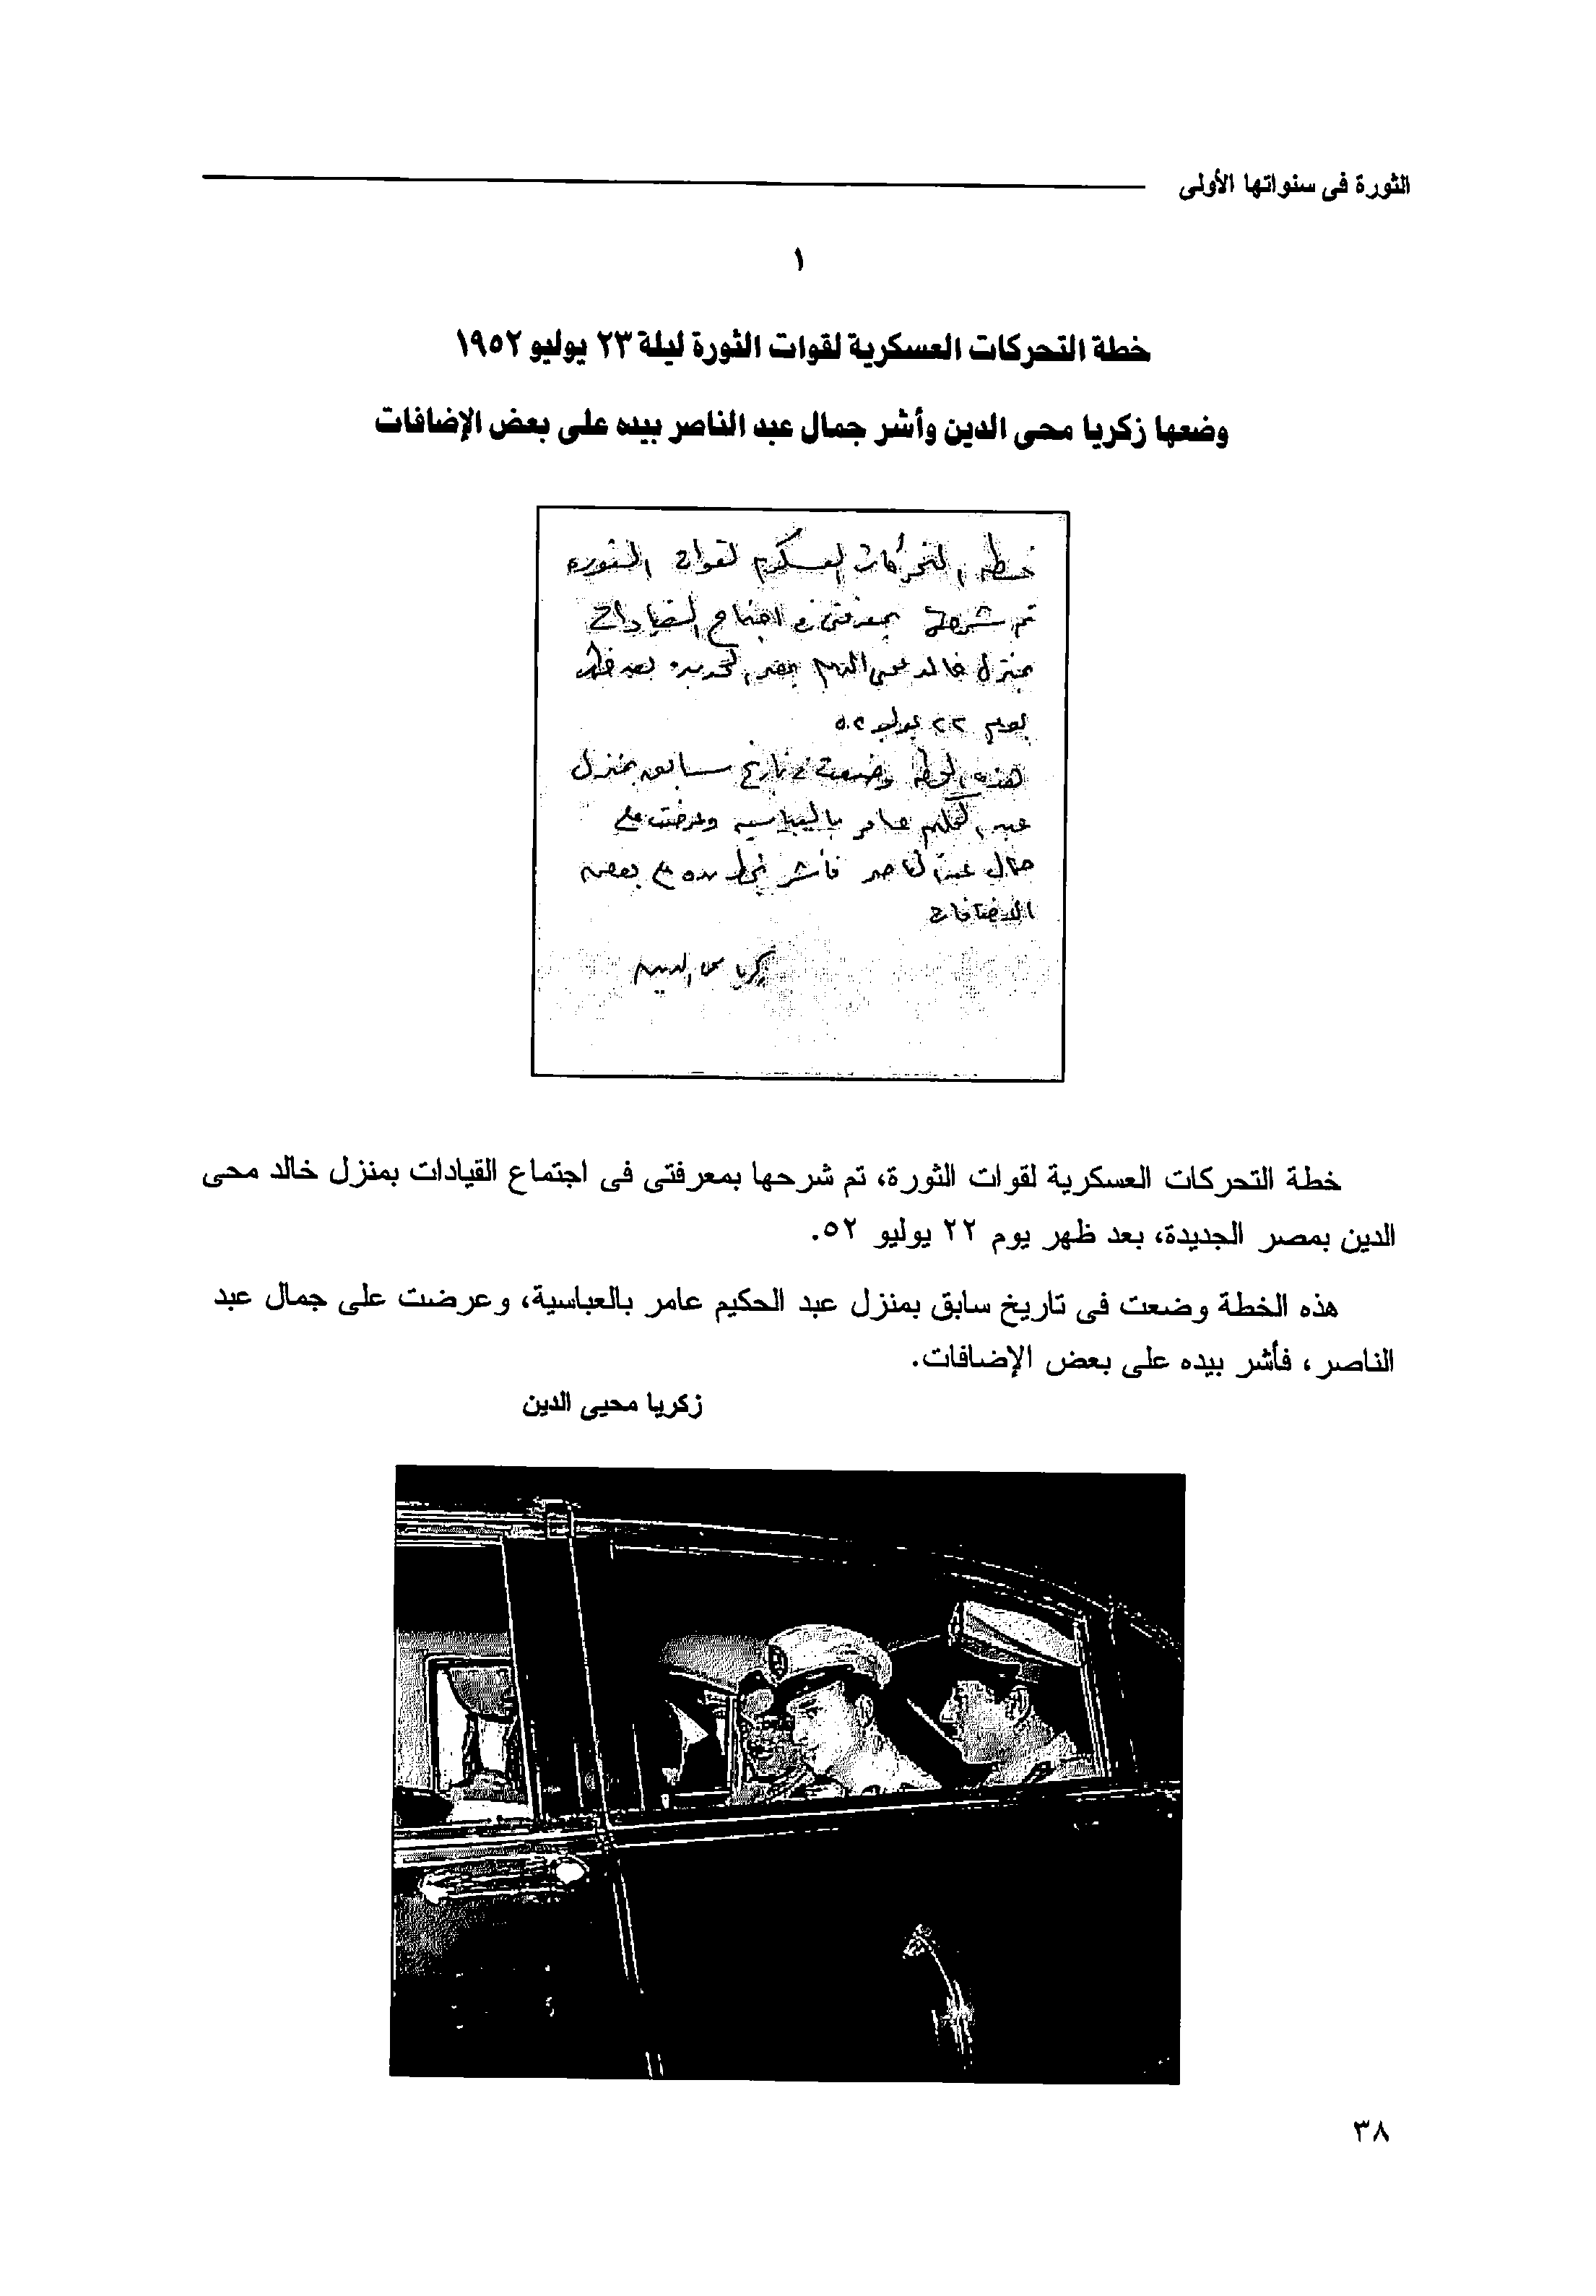 الثورة فى سنواتها الأولى
١
خطة التحركات العسكرية لقوات الثورة ليلة ٢٣ يوليو ١٩٥٢
وضعها زكريا محى الدين وأشر جمال عبد الناصر بيده على بعض الإضافات
خطة التحركات العسكرية لقوات الثوره
تم شرحها بمعرفتى فى اجتماع القيادات
بمنزل خالد محى الدين بمصر الجديده بعد ظهر
يوم ٢٢ يوليو ٥٢
هذه الخطه وضعت فى تاريخ سابق بمنزل
عبد الحكيم عامر بالعباسيه وعرضت على
جمال عبد الناصر فأشر بخط يده على بعض
الاضافات
زكريا محى الدين
خطة التحركات العسكرية لقوات الثورة، تم شرحها بمعرفتى فى اجتماع القيادات بمنزل خالد محى
الدين بمصر الجديدة، بعد ظهر يوم ٢٢ يوليو ٥٢.
هذه الخطة وضعت فى تاريخ سابق بمنزل عبد الحكيم عامر بالعباسية، وعرضت على جمال عبد
الناصر، فأشر بيده على بعض الإضافات.
زكريا محيى الدين
٣٨